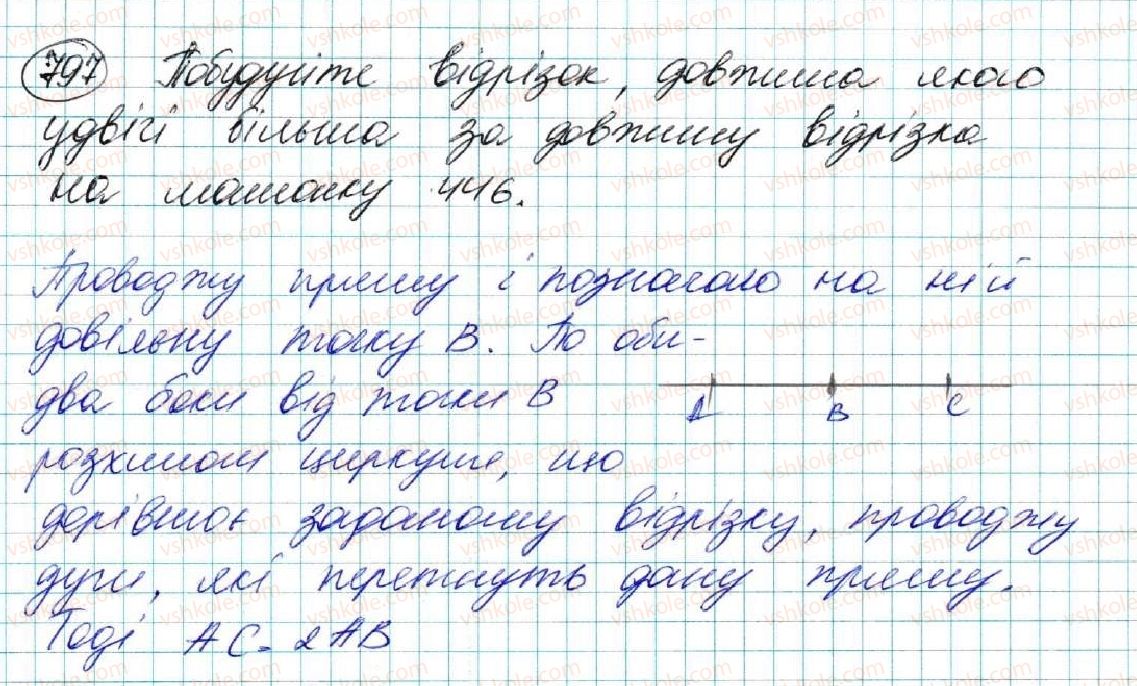 797 Побудуйте відрізок, довжина якого
удвічі більша за довжину відрізка
на малюнку 446.
Проводжу пряму і позначаю на ній
довільну точку B. По оби-
два боки від точки B
A B C
розхилом циркуля, що
дорівнює заданому відрізку, проводжу
дуги, які перетнуть дану пряму.
Тоді AC = 2AB